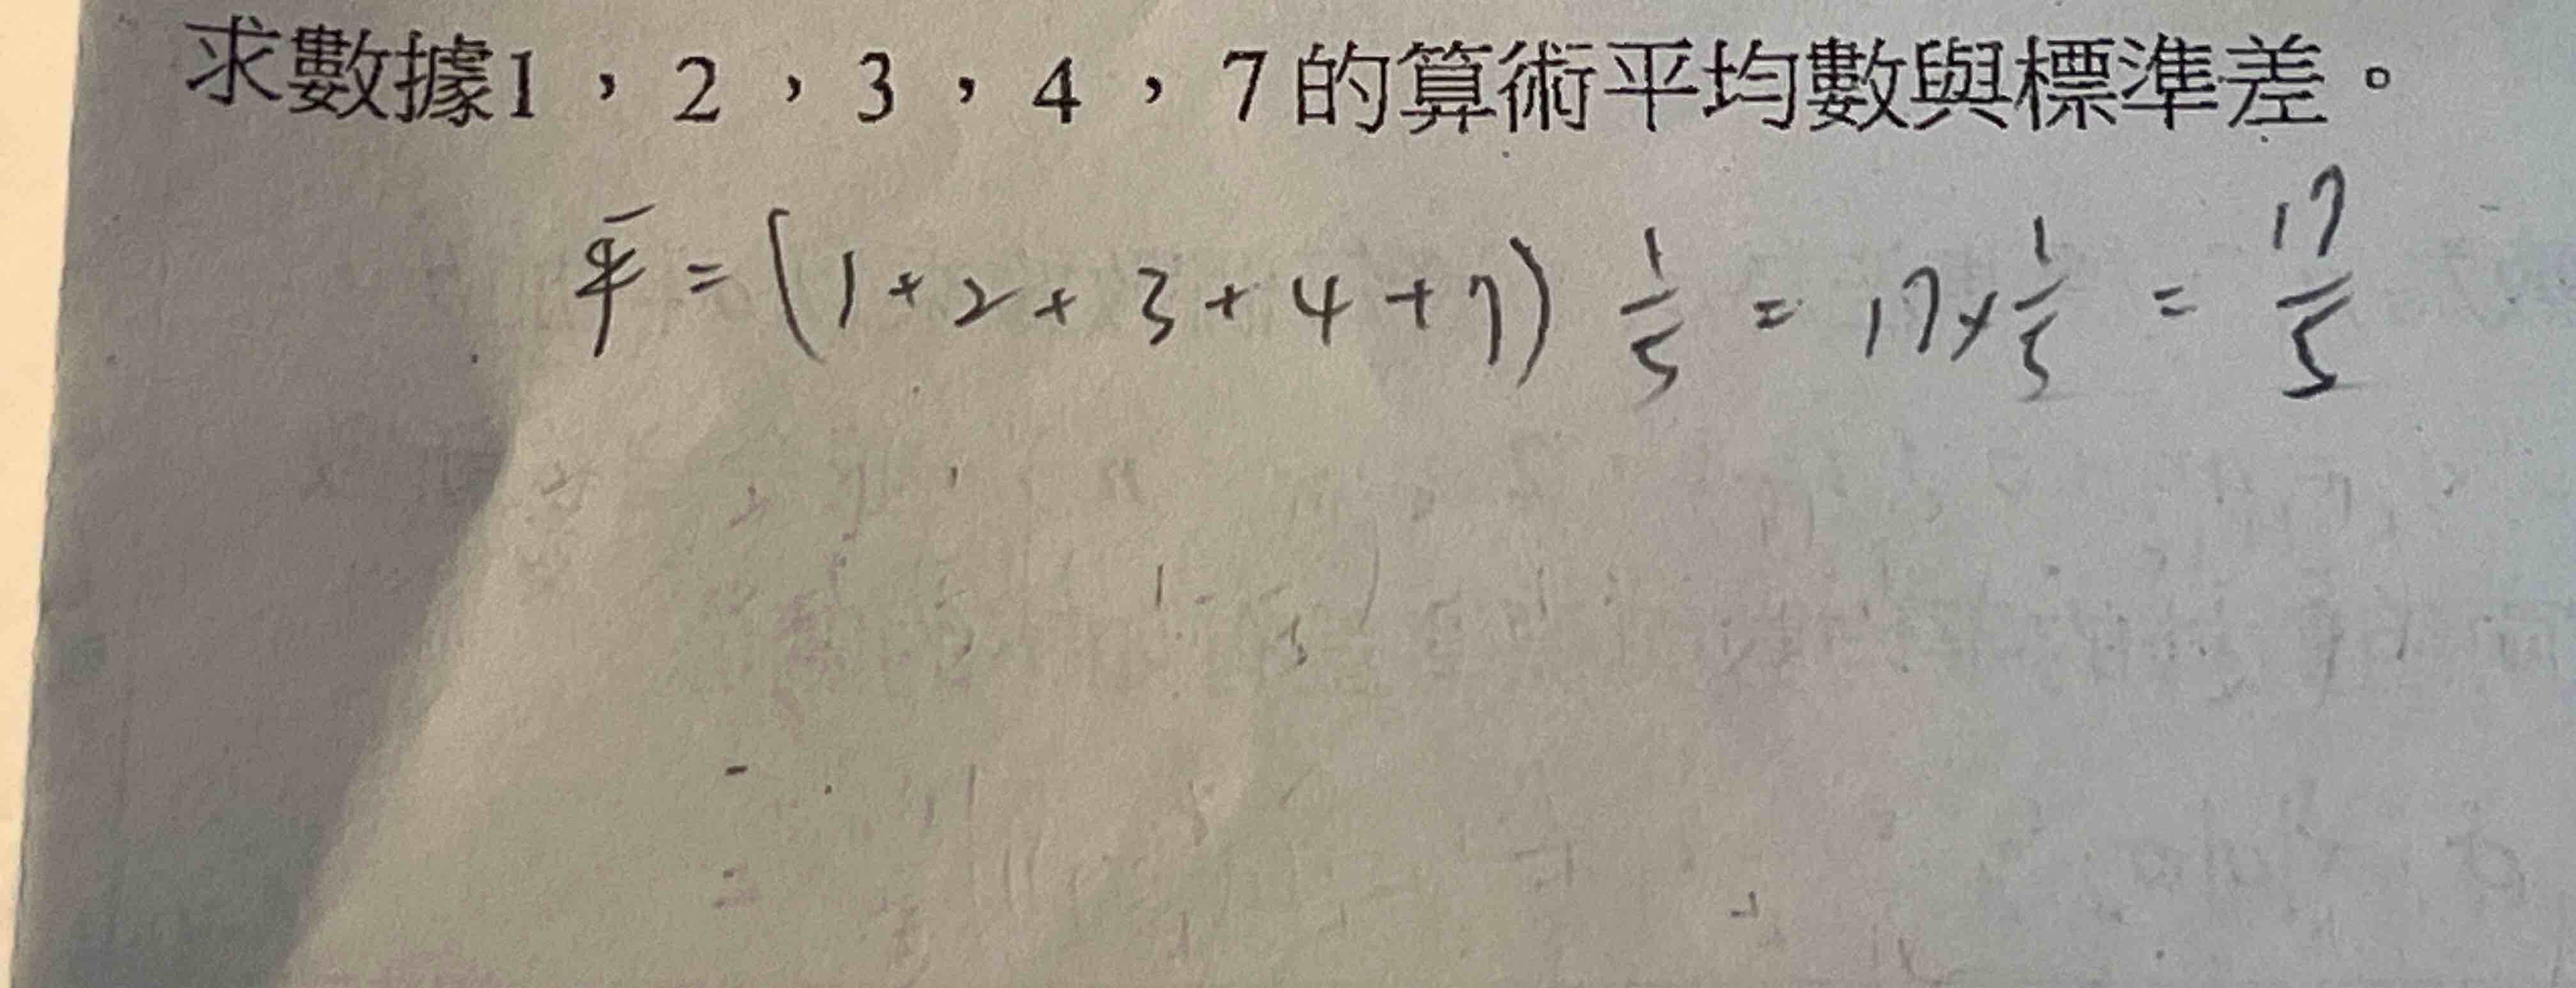 求數據1，2，3，4，7的算術平均數與標準差。
平=(1+2+3+4+7)1/5=17×1/5=17/5